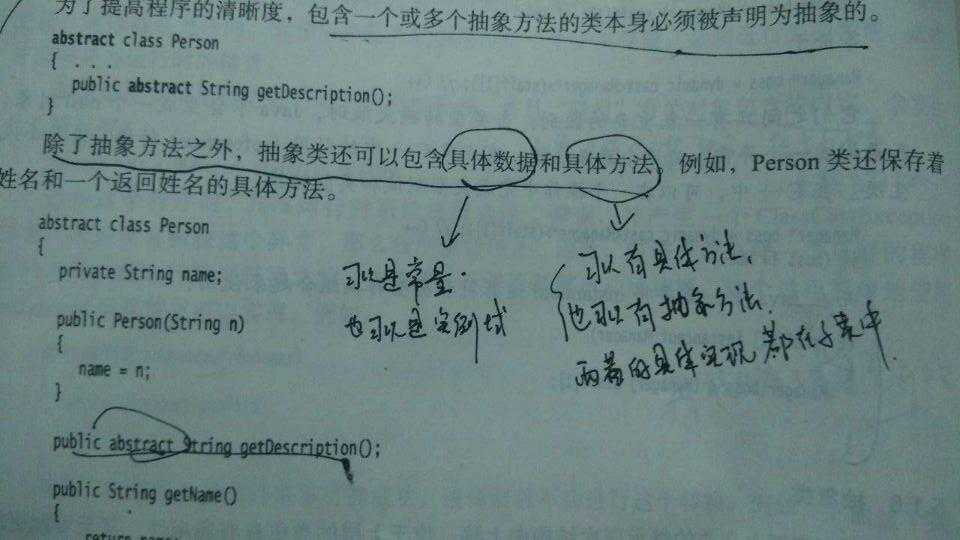 为了提高程序的清晰度，包含一个或多个抽象方法的类本身必须被声明为抽象的。
abstract class Person
{ . . .
public abstract String getDescription();
}
除了抽象方法之外，抽象类还可以包含具体数据和具体方法。例如，Person 类还保存着
姓名和一个返回姓名的具体方法。
abstract class Person
{
private String name;
public Person(String n)
{
name = n;
}
public abstract String getDescription();
public String getName()
{
return name;
可以是常量.
也可以是实例域
可以有具体方法,
也可以有抽象方法.
两者的具体实现都在子类中.